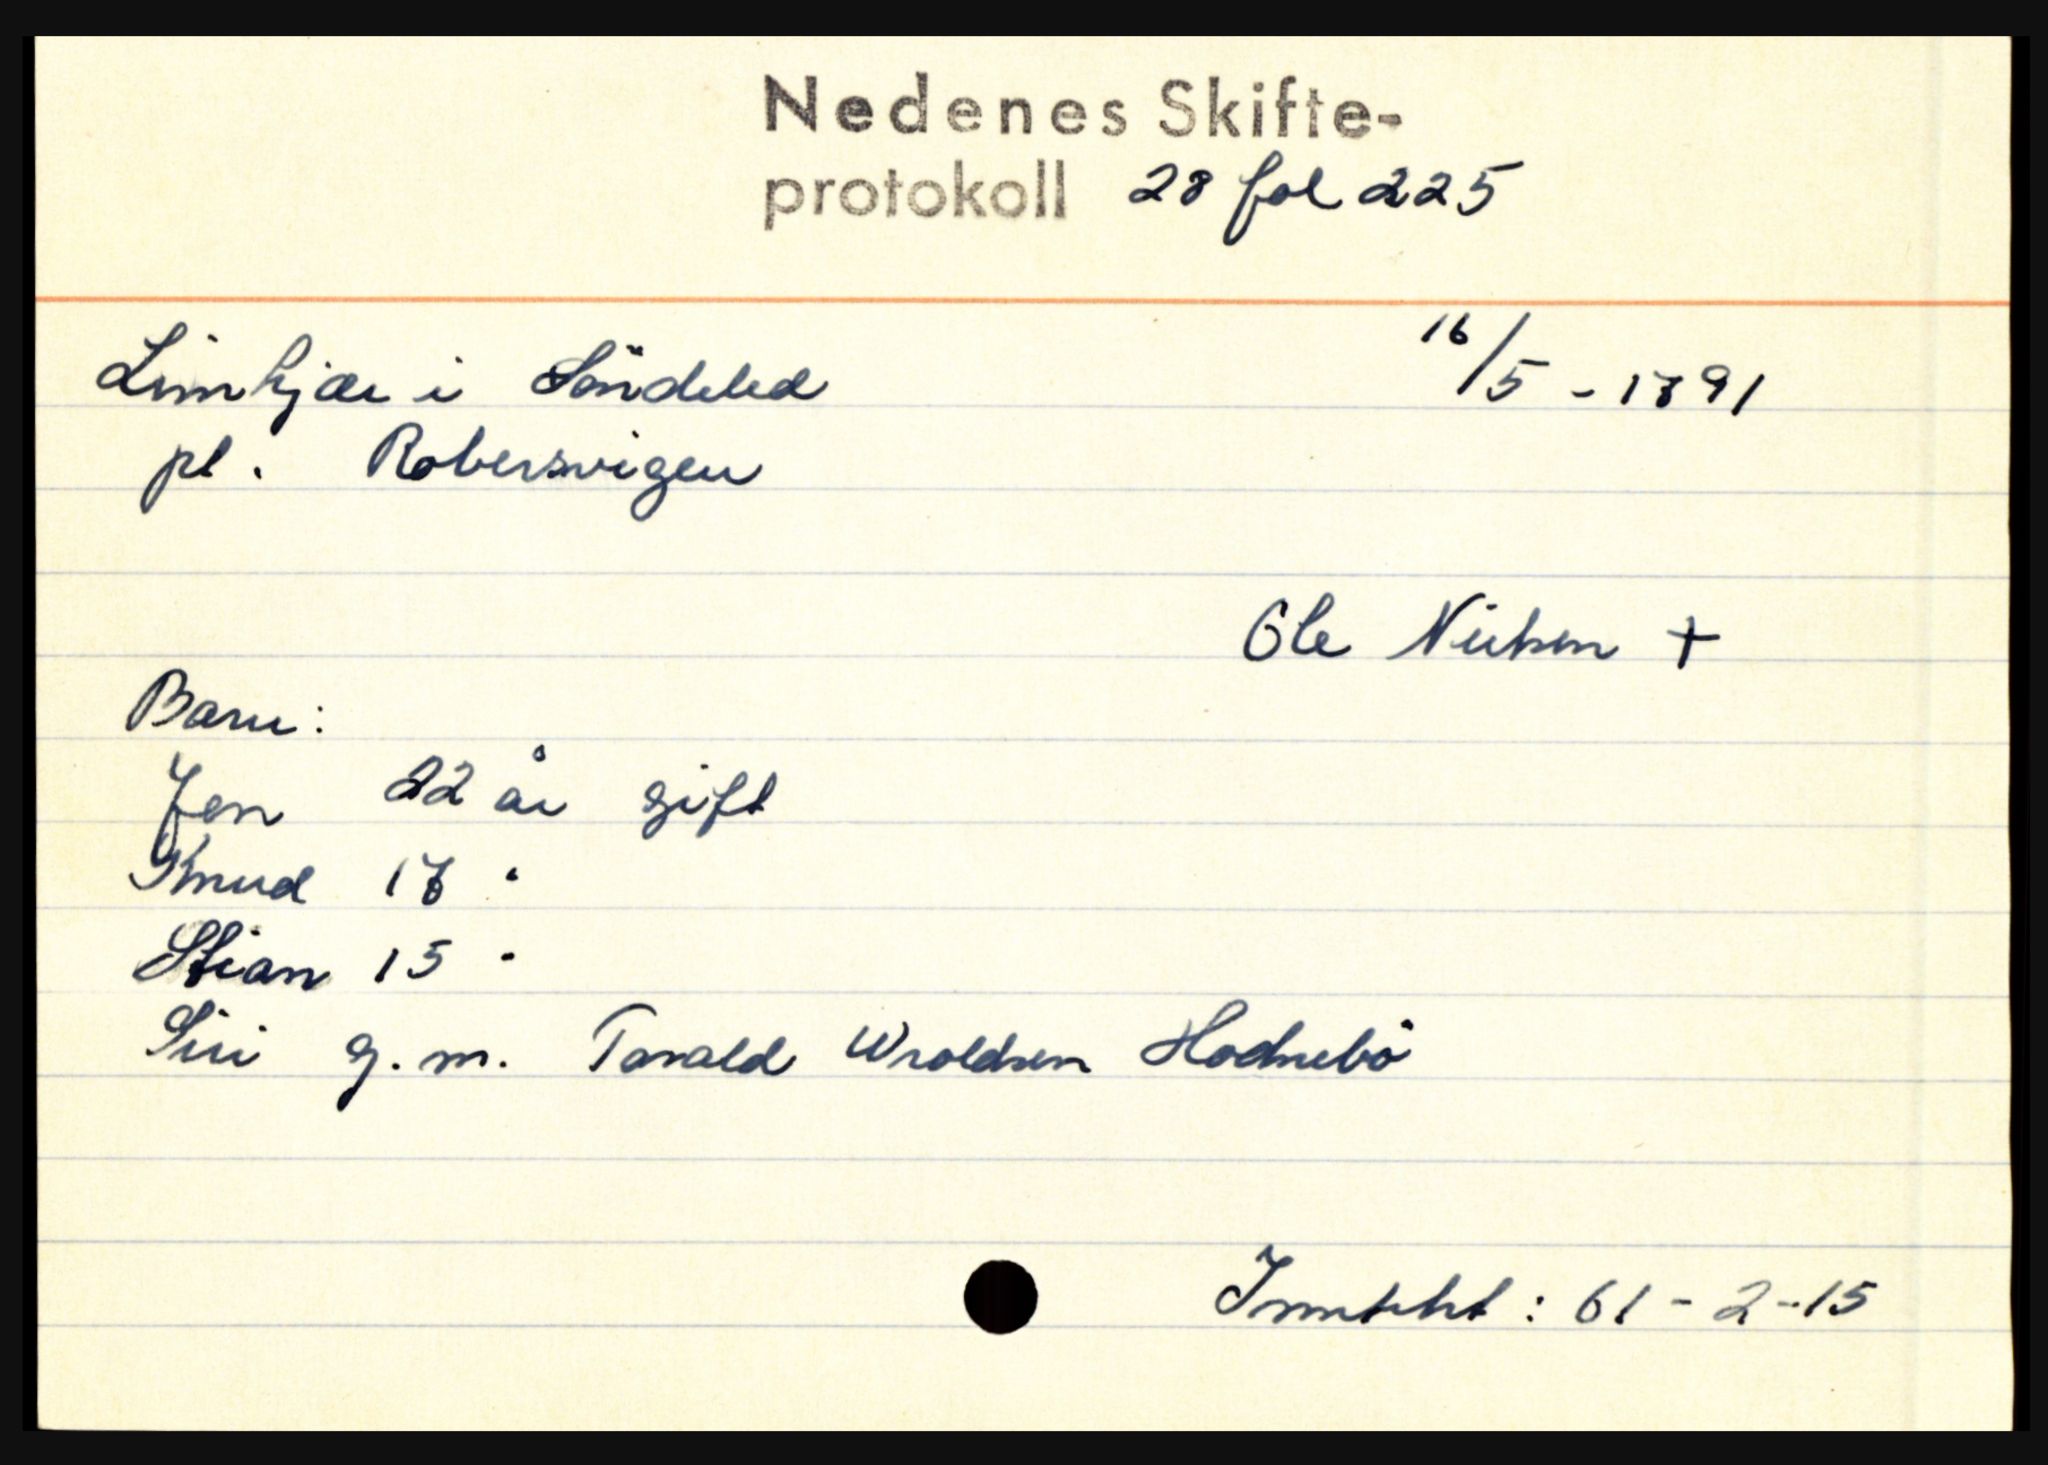 Nedenes Skifte-
protokoll 28 fol 225
Limkjær i Söndeled 16/5 - 1791
pl. Robersvigen
Ole Nielsen +
Barn:
Jen 22 år gift
Knud 18 "
Stian 15 "
Siri g. m. Tarald Wroldsen Hodnebö
Inntekt : 61 - 2 - 15